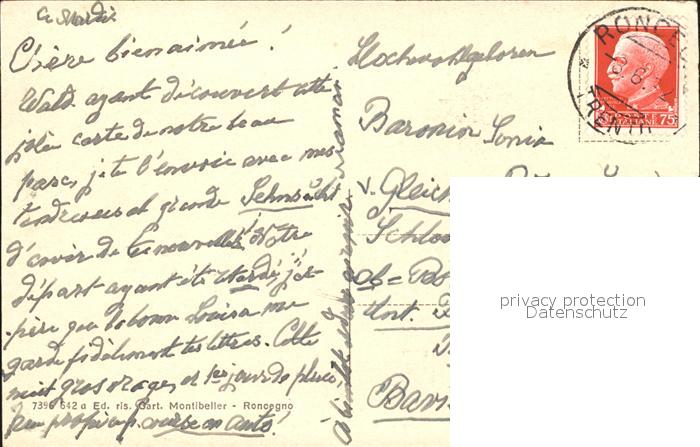 ce Mardi
Chère bienaimée!
Wald ayant découvert cette
jolie carte de notre beau
parc, je te l'envoie avec mes
tendresses et grande Sehnsucht
d'avoir de tes nouvelles! Notre
départ ayant été retardé j'es-
père que la bonne Louisa me
garde fidèlement tes lettres. Cette
nuit gros orages et 1er jour de pluie
peu propice p. course en auto!
à bientôt
Maman
7396 642 a Ed. ris. Gart. Montibeller - Roncegno
Hochwohlgeboren
Baronin Sonia
v. Gleich
Schloss
Post
Unt.
RONCEG
TRENTO
75
privacy protection
Datenschutz